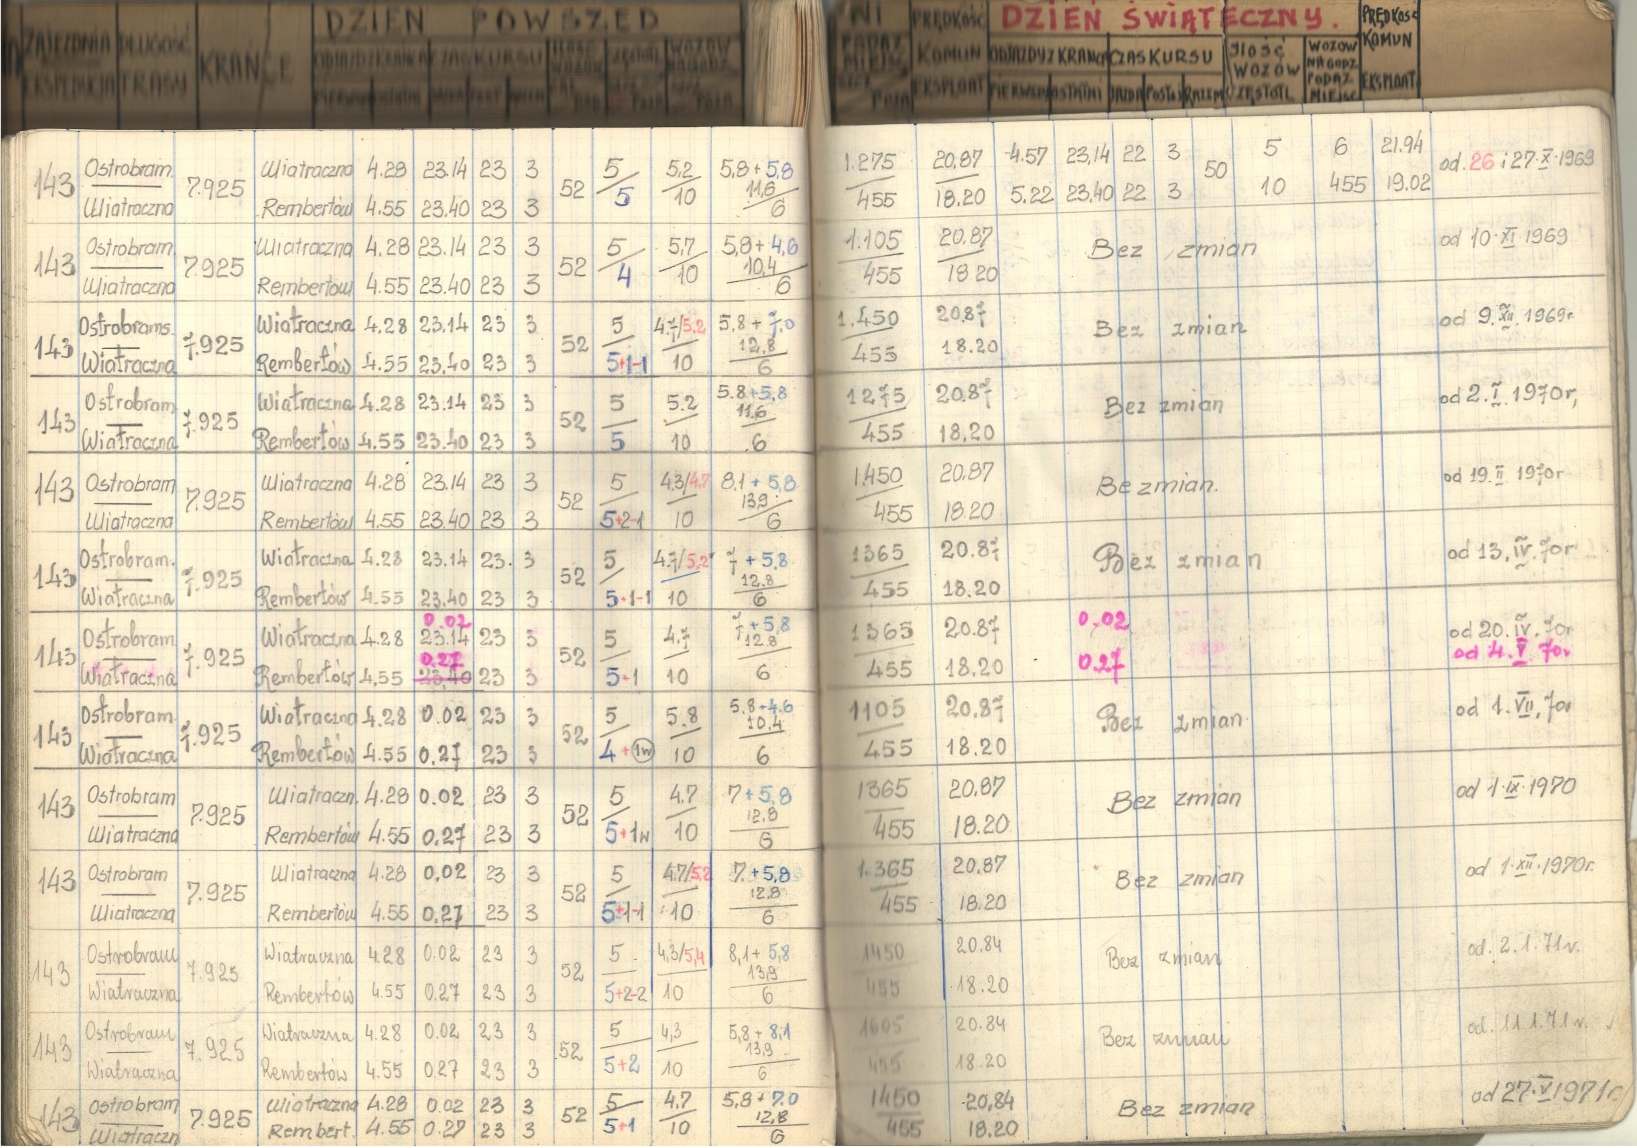 DZIEŃ POWSZED
NI
PRĘDKOŚĆ
DZIEŃ ŚWIĄTECZNY.
PRĘDKOŚĆ
ZAJEZDNIA DŁUGOŚĆ KRAŃCE
KOMUN ODJAZDY Z KRAŃCA CZAS KURSU ILOŚĆ WOZÓW
WOZÓW NA GODZ. PODAŻ MIEJSC
KOMUN
TRASY
EKSPLOAT PIERWSZY OSTATNI JAZDA POSTÓJ RAZEM CZĘSTOTL
EKSPLOAT
143 Ostrobram. 7.925 Wiatraczna 4.28 23.14 23 3 52 5 5,2 5,8+5,8 1.275 20,87 4.57 23,14 22 3 50 5 6 21.94 od 26 i 27.X.1969
11,6
Wiatraczna Rembertów 4.55 23.40 23 3 5 10 6 455 18.20 5.22 23,40 22 3 10 455 19.02
143 Ostrobram. 7.925 Wiatraczna 4.28 23.14 23 3 52 5 5,7 5,8+4,6 1.105 20,87 Bez zmian od 10.XI 1969
10,4
Wiatraczna Rembertów 4.55 23.40 23 3 4 10 6 455 18.20
143 Ostrobrams. 7.925 Wiatraczna 4.28 23.14 23 3 52 5 4.7/5.2 5,8+7.0 1.450 20.87 Bez zmian od 9.XII.1969r
12,8
Wiatraczna Rembertów 4.55 23.40 23 3 5+1-1 10 6 455 18.20
143 Ostrobram. 7.925 Wiatraczna 4.28 23.14 23 3 52 5 5.2 5.8+5,8 1275 20.87 Bez zmian od 2.I.1970r,
11,6
Wiatraczna Rembertów 4.55 23.40 23 3 5 10 6 455 18,20
143 Ostrobram 7.925 Wiatraczna 4.28 23.14 23 3 52 5 4,3/4,7 8,1+5,8 1.450 20,87 Bezmian. od 19.II 1970r
13,9
Wiatraczna Rembertów 4.55 23.40 23 3 5+2-1 10 6 455 18.20
143 Ostrobram. 7.925 Wiatraczna 4.28 23.14 23. 3 52 5 4.7/5,2 7+5,8 1365 20.87 Bez zmian od 13,IV.70r
12,8
Wiatraczna Rembertów 4.55 23.40 23 3 5+1-1 10 6 455 18.20
0.02 0.02
143 Ostrobram. 7.925 Wiatraczna 4.28 23.14 23 3 52 5 4.7 7+5,8 1365 20.87 od 20.IV.70r
0.27 12.8 0.27 od 4.V 70r
Wiatraczna Rembertów 4.55 23.40 23 3 5+1 10 6 455 18.20
143 Ostrobram. 7.925 Wiatraczna 4.28 0.02 23 3 52 5 5.8 5.8+4.6 1105 20.87 Bez zmian od 1.VII,70r
10,4
Wiatraczna Rembertów 4.55 0.27 23 3 4+1w 10 6 455 18.20
143 Ostrobram 7.925 Wiatraczn. 4.28 0.02 23 3 52 5 4.7 7+5,8 1365 20,87 Bez zmian od 1.IX.1970
12.8
Wiatraczna Rembertów 4.55 0.27 23 3 5+1w 10 6 455 18.20
143 Ostrobram 7.925 Wiatraczna 4.28 0,02 23 3 52 5 4.7/5,2 7.+5,8 1.365 20,87 Bez zmian od 1.XII.1970r.
12,8
Wiatraczna Rembertów 4.55 0,27 23 3 5+1-1 10 6 455 18.20
143 Ostrobram 7.925 Wiatraczna 4.28 0.02 23 3 52 5 4,3/5,4 8,1+5,8 1450 20.84 Bez zmian od. 2.1.71r.
13,9
Wiatraczna Rembertów 4.55 0.27 23 3 5+2-2 10 6 455 18.20
143 Ostrobram 7.925 Wiatraczna 4.28 0.02 23 3 52 5 4,3 5,8+8,1 1605 20.84 Bez zmian od. 11 1.71r.
13,9
Wiatraczna Rembertów 4.55 0.27 23 3 5+2 10 6 455 18.20
143 Ostrobram 7.925 Wiatraczna 4.28 0.02 23 3 52 5 4,7 5,8+7.0 1450 20,84 Bez zmian od 27.V 1971r
12,8
Wiatraczn Rembert. 4.55 0.27 23 3 5+1 10 6 455 18.20